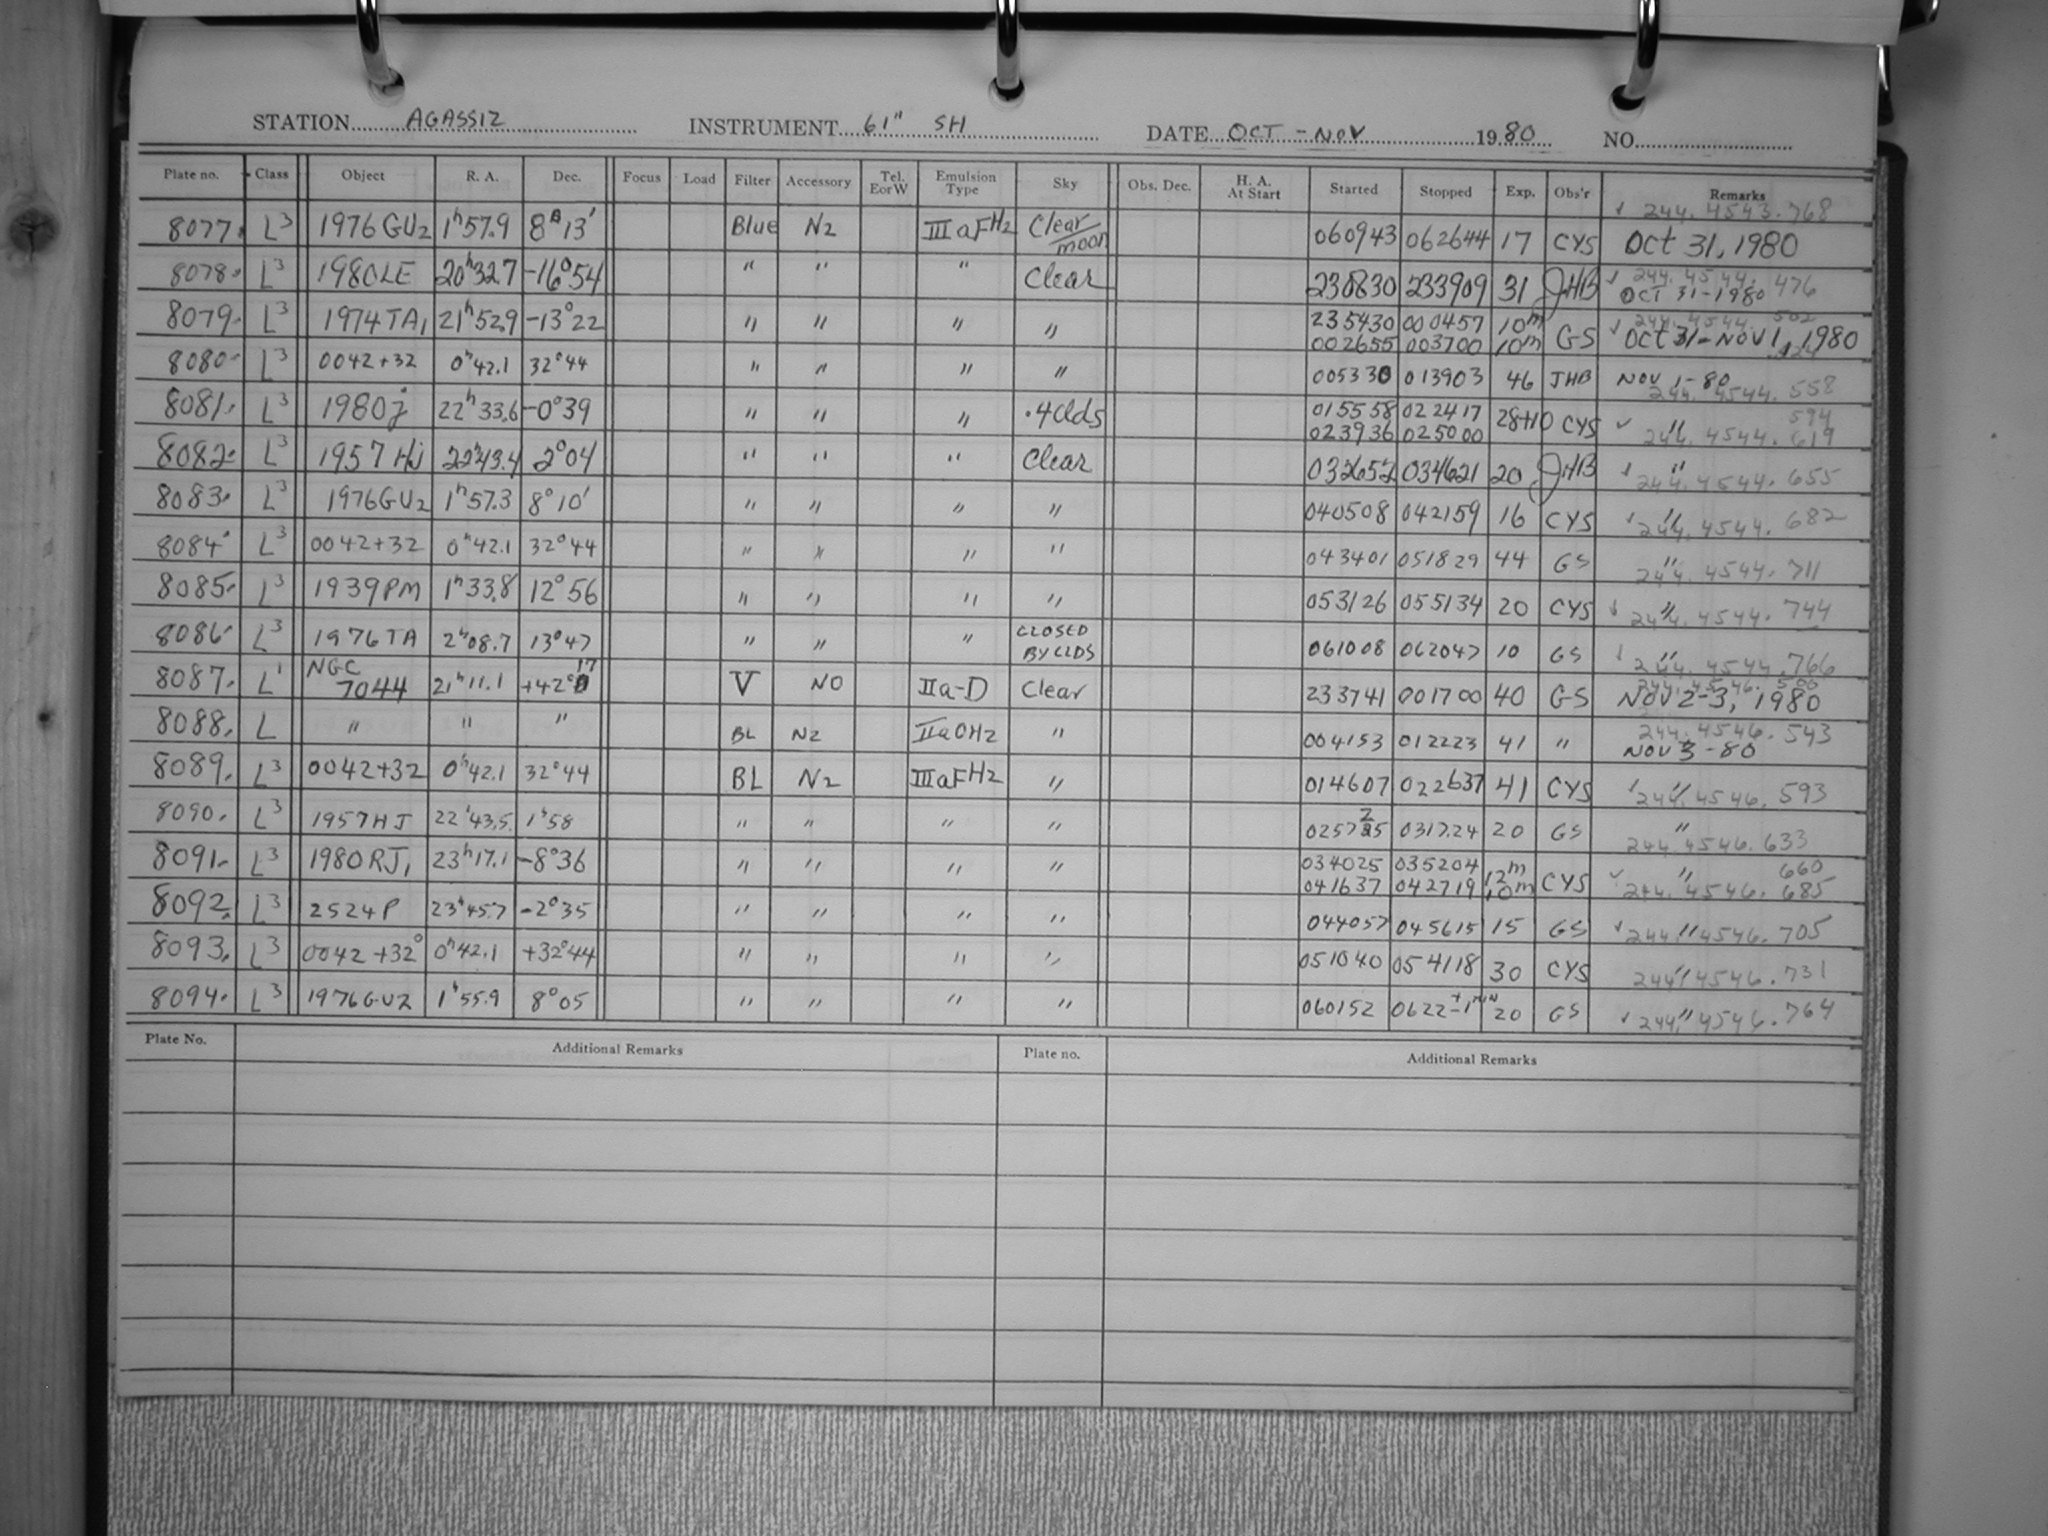 STATION AGASSIZ INSTRUMENT 61" SH DATE OCT - NOV 1980 NO.
Plate no. Class Object R. A. Dec. Focus Load Filter Accessory Tel. E or W Emulsion Type Sky Obs. Dec. H. A. At Start Started Stopped Exp. Obs'r Remarks
244.4543.768
8077. L3 1976 GU2 1h57.9 8°13' Blue N2 IIIaFH2 Clear/moon 060943 062644 17 CYS Oct 31, 1980
244.4544.476
8078. L3 1980LE 20h32.7 -16°54 " " " Clear 230830 233909 31 JHB OCT 31-1980
244.4544.502
8079. L3 1974TA1 21h52.9 -13°22 " " " " 235430 000457 10m GS Oct 31-NOV 1, 1980
002655 003700 10m
8080. L3 0042+32 0h42.1 32°44 " " " " 005330 013903 46 JHB NOV 1-80
244.4544.558
8081. L3 1980j 22h33.6 -0°39 " " " .4clds 015558 022417 28+10 CYS " 594
023936 025000 244.4544.619
8082. L3 1957 HJ 22h43.4 2°04 " " " Clear 032652 034621 20 JHB " 244.4544.655
8083. L3 1976GU2 1h57.3 8°10' " " " " 040508 042159 16 CYS " 244.4544.682
8084. L3 0042+32 0h42.1 32°44 " " " " 043401 051829 44 GS " 244.4544.711
8085. L3 1939PM 1h33.8 12°56 " " " " 053126 055134 20 CYS " 244.4544.744
8086. L3 1976TA 2h08.7 13°47 " " " CLOSED BY CLDS 061008 062047 10 GS " 244.4544.766
244.4546.500
8087. L1 NGC 7044 21h11.1 +42°17 V NO IIa-D Clear 233741 001700 40 GS NOV 2-3, 1980
244.4546.543
8088. L " " " BL N2 IIaOH2 " 004153 012223 41 " NOV 3-80
8089. L3 0042+32 0h42.1 32°44 BL N2 IIIaFH2 " 014607 022637 41 CYS " 244.4546.593
8090. L3 1957HJ 22h43.5 1°58 " " " " 025725 031724 20 GS " 244.4546.633
8091. L3 1980RJ1 23h17.1 -8°36 " " " " 034025 035204 12m CYS " 660
041637 042719 10m 244.4546.685
8092. L3 2524P 23h45.7 -2°35 " " " " 044057 045615 15 GS " 244.4546.705
8093. L3 0042+32° 0h42.1 +32°44 " " " " 051040 054118 30 CYS " 244.4546.731
8094. L3 1976GU2 1h55.9 8°05 " " " " 060152 0622±1min 20 GS " 244.4546.764
Plate No. Additional Remarks Plate no. Additional Remarks